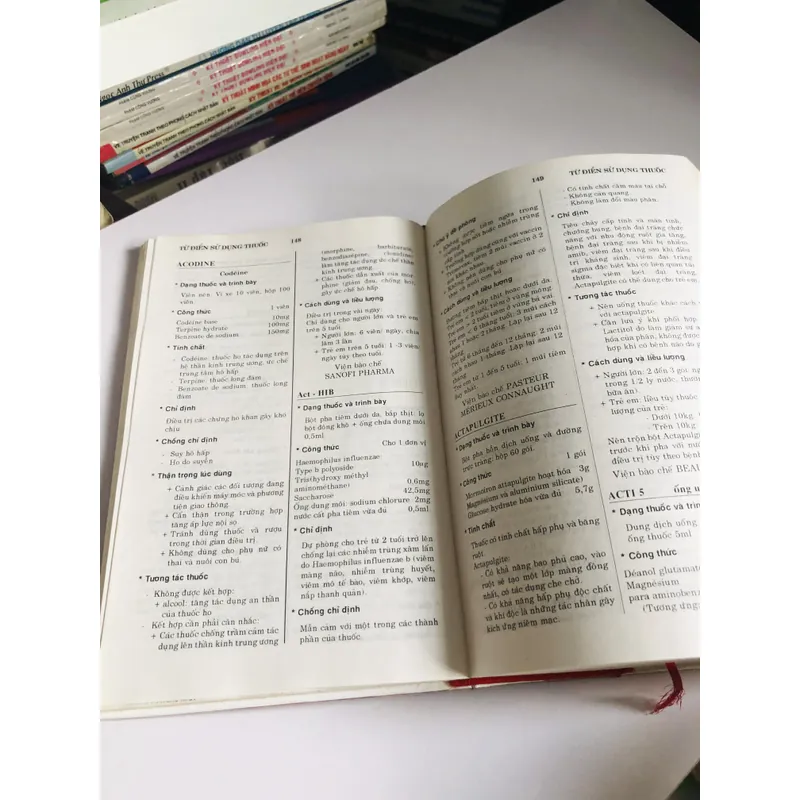 Ngọc Anh Thư Press
PHẠM CÔNG TƯỜNG
KỸ THUẬT BOWLING HIỆN ĐẠI
KỸ THUẬT BOWLING HIỆN ĐẠI
VẼ TRUYỆN TRANH THEO PHONG CÁCH NHẬT BẢN
VẼ TRUYỆN TRANH THEO PHONG CÁCH NHẬT BẢN
TỪ ĐIỂN SỬ DỤNG THUỐC
148
ACODINE
Codéine
* Dạng thuốc và trình bày
Viên nén: Vỉ xé 10 viên, hộp 100
viên.
* Công thức
1 viên
Codéine base 10mg
Terpine hydrate 100mg
Benzoate de sodium 150mg
* Tính chất
- Codéine: thuốc ho tác dụng trên
hệ thần kinh trung ương, ức chế
trung tâm hô hấp.
- Terpine: thuốc long đàm
- Benzoate de sodium: thuốc long
đàm.
* Chỉ định
Điều trị các chứng ho khan gây khó
chịu
* Chống chỉ định
- Suy hô hấp
- Ho do suyễn
* Thận trọng lúc dùng
+ Cảnh giác các đối tượng đang
điều khiển máy móc và phương
tiện giao thông.
+ Cẩn thận trong trường hợp
tăng áp lực nội sọ
+ Tránh dùng thuốc và rượu
trong thời gian điều trị.
+ Không dùng cho phụ nữ có
thai và nuôi con bú.
* Tương tác thuốc
- Không được kết hợp:
+ alcool: tăng tác dụng an thần
của thuốc ho
- Kết hợp cần phải cân nhắc:
+ Các thuốc chống trầm cảm tác
dụng lên thần kinh trung ương
(morphine, barbiturate,
benzodiazépine, clonidine)
làm tăng tác dụng ức chế thần
kinh trung ương.
+ Các thuốc dẫn xuất của mor-
phine (giảm đau, chống ho),
gây ức chế hô hấp
* Cách dùng và liều lượng
Điều trị trong vài ngày:
Chỉ dùng cho người lớn và trẻ em
trên 5 tuổi.
+ Người lớn: 6 viên/ ngày, chia
làm 3 lần
+ Trẻ em trên 5 tuổi: 1 -3 viên/
ngày tùy theo tuổi.
Viện bào chế
SANOFI PHARMA
Act - HIB
* Dạng thuốc và trình bày
Bột pha tiêm dưới da, bắp thịt: lọ
bột đông khô + ống chứa dung môi
0,5ml
* Công thức
Cho 1 đơn vị
Haemophilus influenzae
Type b polyoside 10ng
Trishydroxy méthyl
aminométhane) 0,6mg
Saccharose 42,5mg
Ống dung môi: sodium chlorure 2mg
nước cất pha tiêm vừa đủ 0,5ml
* Chỉ định
Dự phòng cho trẻ từ 2 tuổi trở lên
chống lại các nhiễm trùng xâm lấn
do Haemophilus influenzae b (viêm
màng não, nhiễm trùng huyết,
viêm mô tế bào, viêm khớp, viêm
nắp thanh quản).
* Chống chỉ định
Mẫn cảm với một trong các thành
phần của thuốc.
149
TỪ ĐIỂN SỬ DỤNG THUỐC
* Cách dùng và liều lượng
Viện bào chế PASTEUR
MÉRIEUX CONNAUGHT
ACTAPULGITE
* Dạng thuốc và trình bày
Bột pha hỗn dịch uống và đường
trực tràng: hộp 60 gói.
* Công thức
1 gói
Mormoiron attapulgite hoạt hóa 3g
Magnésium và aluminium silicate)
Glucose hydrate hóa vừa đủ 5,7g
* Tính chất
Thuốc có tính chất hấp phụ và băng
ruột
Actapulgite:
- Có khả năng bao phủ cao, vào
ruột sẽ tạo một lớp màng đồng
nhất, có tác dụng che chở
- Có khả năng hấp phụ độc chất
và khí độc là những tác nhân gây
kích ứng niêm mạc.
- Có tính chất cầm máu tại chỗ
- Không cản quang
- Không làm đổi màu phân.
* Chỉ định
Tiêu chảy cấp tính và mãn tính,
chướng bụng, bệnh đại tràng chức
năng với nhu động ruột gia tăng,
bệnh đại tràng sau khi bị nhiễm
amib, viêm đại tràng sau khi điều
trị kháng sinh, viêm đại tràng
sigma đặc biệt khi có liên quan túi
thừa, viêm loét đại tràng.
Actapulgite có thể dùng cho trẻ em
* Tương tác thuốc
+ Nên uống thuốc khác cách
với actapulgite
+ Cần lưu ý khi phối hợp
Lactitol do làm giảm sự a
hóa của phân, không được
hợp khi có bệnh não do g
* Cách dùng và liều lượng
+ Người lớn: 2 đến 3 gói/ ng
trong 1/2 ly nước, thườ
bữa ăn)
+ Trẻ em: liều tùy thuộc
lượng của trẻ:
- Dưới 10kg
- Trên 10kg
Nên trộn bột Actapulg
trước khi pha với nước
điều trị tùy theo bệnh
Viện bào chế BEAU
ACTI 5 ống u
* Dạng thuốc và trình
Dung dịch uống
ống thuốc 5ml
* Công thức
Déanol glutamate
Magnésium
para aminobenz
(Tương ứng